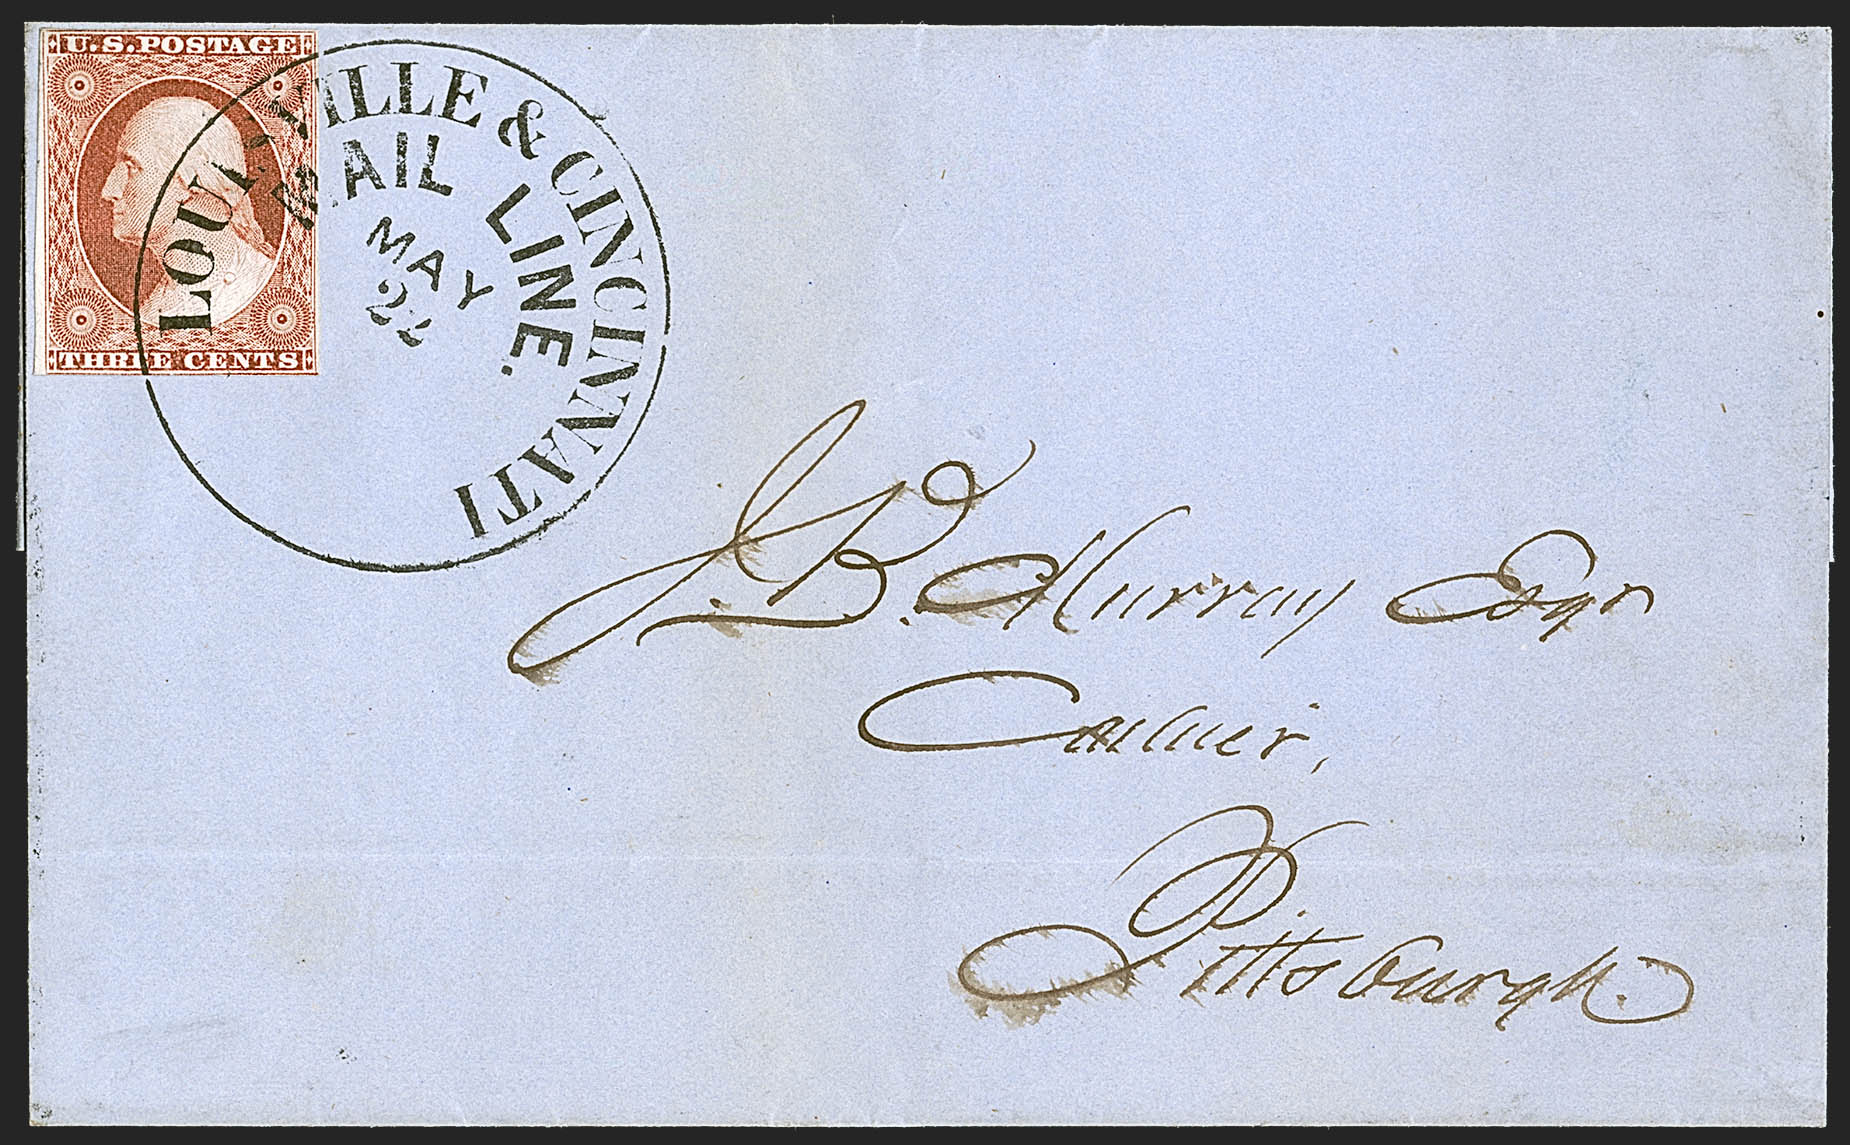 U.S. POSTAGE
THREE CENTS
LOUISVILLE & CINCINNATI
MAIL LINE.
MAY
22
J. B. Murray Esqr
Cashier,
Pittsburgh.